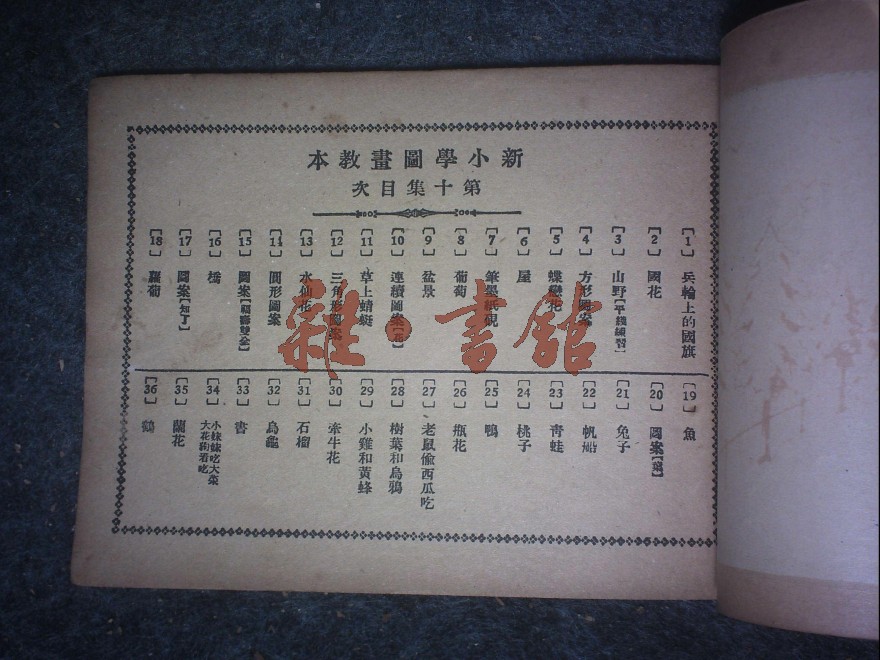 新小學圖畫教本
第十集目次
[1] 兵輪上的國旗
[2] 國花
[3] 山野[平綫練習]
[4] 方形圖案
[5] 蝶戀花
[6] 屋
[7] 筆墨紙硯
[8] 葡萄
[9] 盆景
[10] 連續圖案[花]
[11] 草上蜻蜓
[12] 三角形圖案
[13] 水仙花
[14] 圓形圖案
[15] 圖案[福壽雙全]
[16] 橋
[17] 圖案[知了]
[18] 蘿蔔
[19] 魚
[20] 圖案[葉]
[21] 兔子
[22] 帆船
[23] 靑蛙
[24] 桃子
[25] 鴨
[26] 瓶花
[27] 老鼠偸西瓜吃
[28] 樹葉和烏鴉
[29] 小雞和黃蜂
[30] 牽牛花
[31] 石榴
[32] 烏龜
[33] 書
[34] 小妹妹吃大菜
大花狗看吃
[35] 蘭花
[36] 鶴
雜·書館